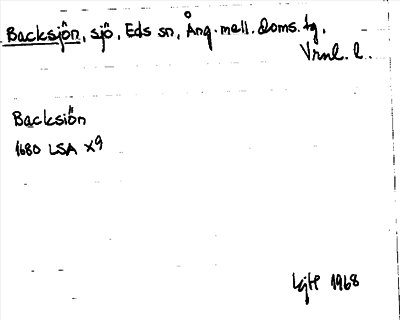 Backsjön, sjö, Eds sn, Ång. mell. doms. tg.
Vrnl. l.
Backsiön
1680 LSA X9
LgH 1968